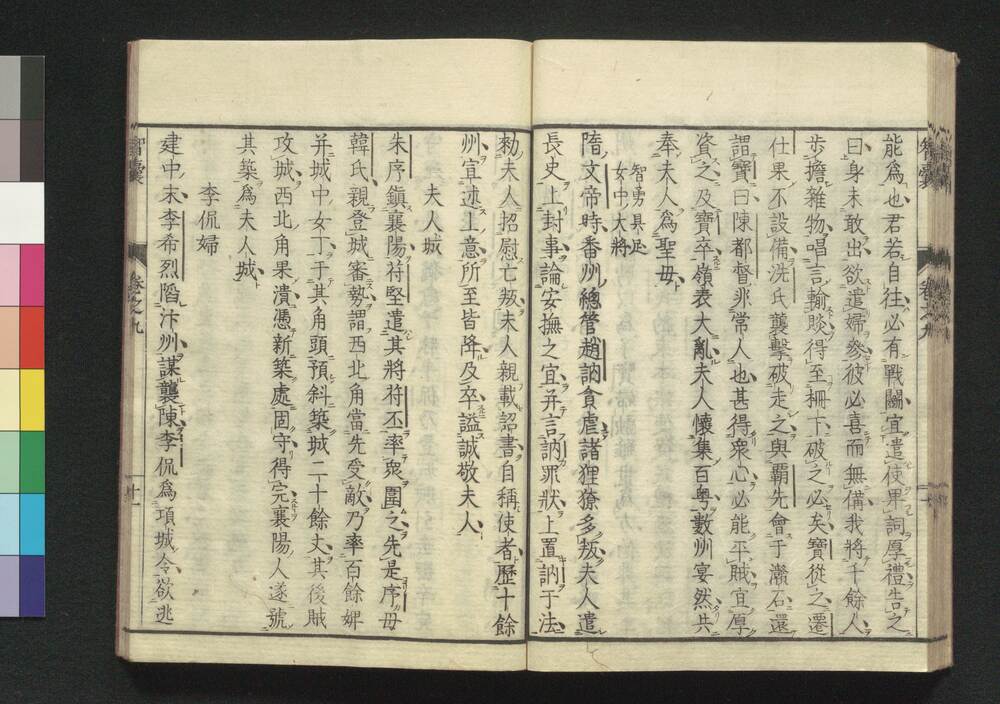 能爲也君若自往必有戰鬬宜遣使果詞厚禮告之
曰身未敢出欲遣婦參彼必喜而無備我將千餘人
步擔雜物唱言輸賧得至柵下破之必矣寶從之遷
仕果不設備洗氏襲擊破走之與霸先會于灨石還
謂寶曰陳都督非常人也甚得衆心必能平賊宜厚
資之及寶卒嶺表大亂夫人懷集百粤數州宴然共
奉夫人爲聖毋
智勇具足
女中大將
隋文帝時番州總管趙訥貪虐諸狸獠多叛夫人遣
長史上封事論安撫之宜并言訥罪狀上置訥于法
勑夫人招慰亡叛夫人親載詔書自稱使者歷十餘
州宜述上意所至皆降及卒謚誠敬夫人
夫人城
朱序鎭襄陽苻堅遣其將苻丕率衆圍之先是序毋
韓氏親登城審勢謂西北角當先受敵乃率百餘婢
并城中女丁于其角頭預斜築城二十餘丈其後賊
攻城西北角果潰憑新築處固守得完襄陽人遂號
其築爲夫人城
李侃婦
建中末李希烈陷汴州謀襲陳李侃爲項城令欲逃
智囊
卷之九
十一
智囊
卷之九